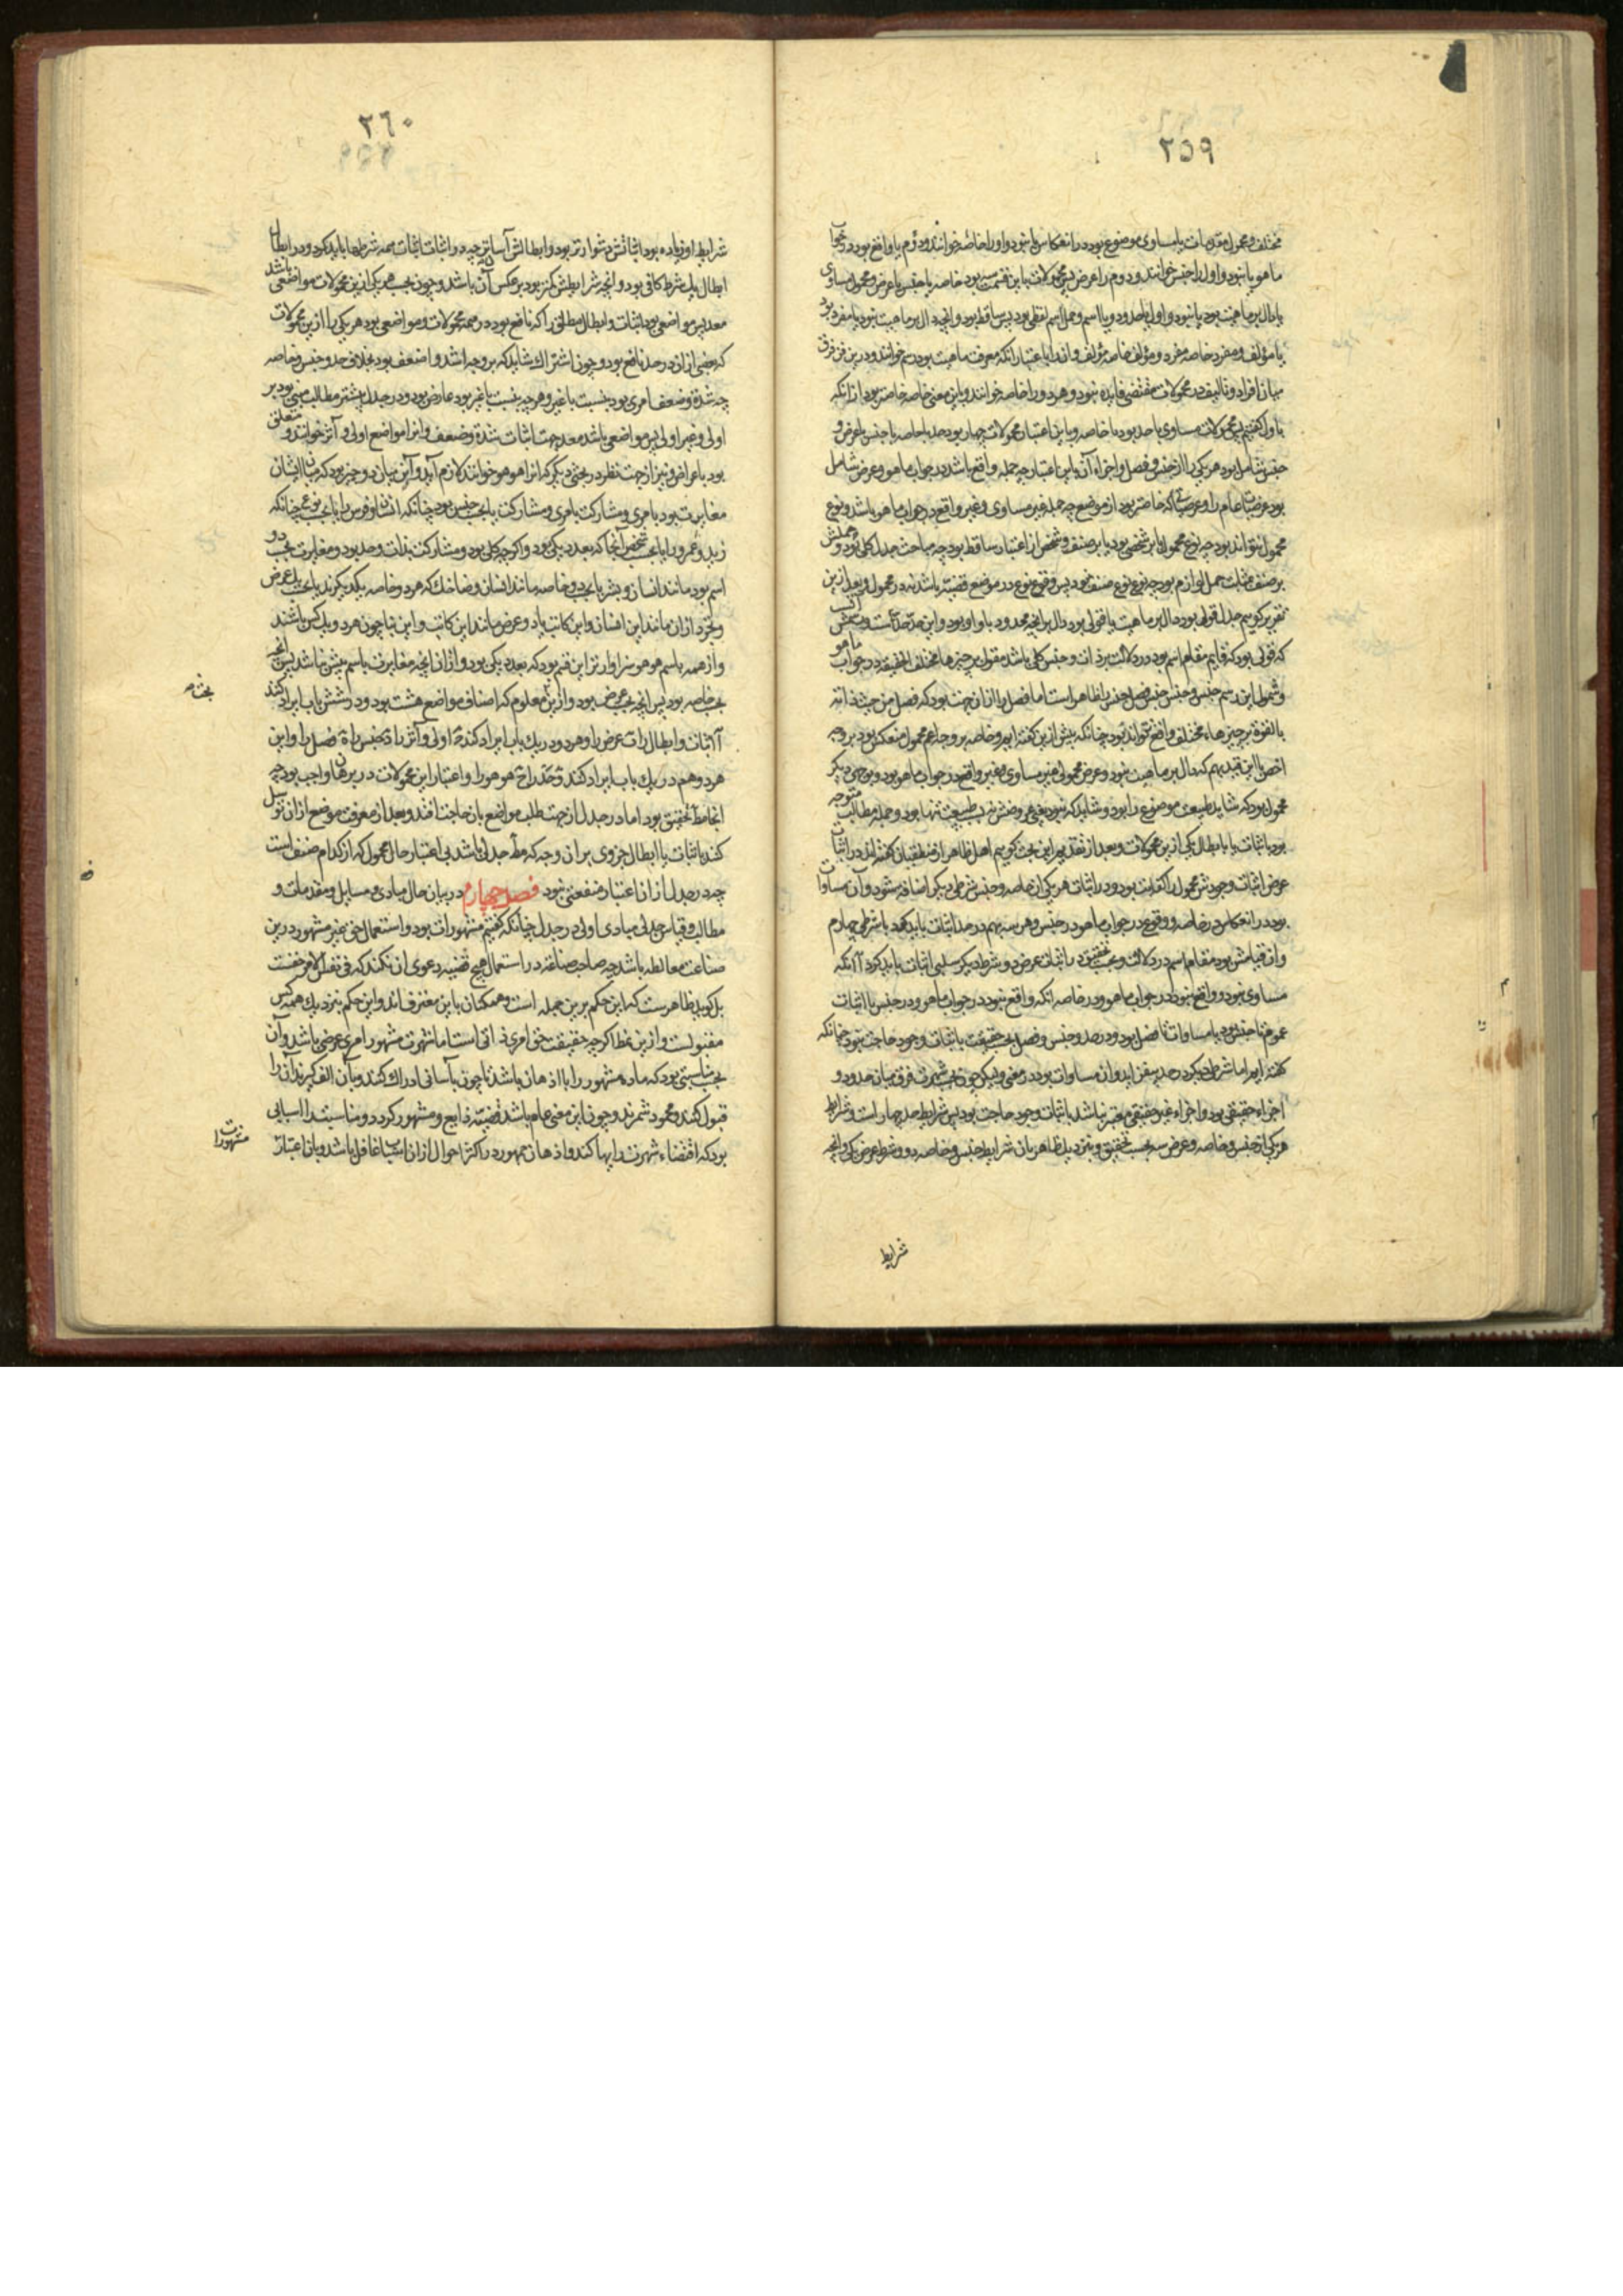 ٢٥٩
مختلف و محمول مقدمات یا مساوی موضوع بود در انعکاس یا نبود و اول را خاصه خوانند و دوم یا واقع بود در جواب
ما هو یا نبود و اول را جنس خوانند و دوم را عرض پس محمولات باین قسمت سه بود خاصه یا جنس یا عرض و محمول مساوی
یا دال بر ماهیت بود یا نبود و اول یا حد بود یا اسم و حمل اسم لفظی بود پس ساقط بود و آنچه دال بر ماهیت نبود یا مفرد بود
یا مؤلف و مفرد خاصه مفرد و مؤلف خاصه مؤلف و آنرا باعتبار آنکه معرف ماهیت بود رسم خوانند و درین فن فرق
میان افراد و تالیف در محمولات مقتضی فایده نبود و هر دو را خاصه خوانند و باین معنی خاصه خاصتر بود از آنکه
باول گفتیم پس محمولات مساوی یا حد بود یا خاصه و باین اعتبار محمولات چهار بود حد یا خاصه یا جنس یا عرض و
جنس شامل بود هر یکی را از جنس و فصل و اجزاء آن باین اعتبار چه جمله واقع باشد در جواب ما هو و عرض شامل
بود عرضیات عام را و عرضیاتی که خاصتر بود از موضوع چه جمله غیر مساوی و غیر واقع در جواب ما هو باشد و نوع
محمول نتواند بود چه نوع محمول یا بر شخصی بود یا بر صنف و شخص از اعتبار ساقط بود چه مباحث جدل کلی بود و حملش
بر صنف بمثابت حمل لوازم بود چه نوع نوع صنف نبود پس وقوع نوع در موضع قضیه باشد نه در محمول و بعد ازین
تقریر گوییم حد قولی بود دال بر ماهیت یا قولی بود دال بر آنچه محدود باو او بود و این حد حد است و رسمش
که قولی بود که قایم مقام اسم بود در دلالت بر ذات و جنس کلی باشد مقول بر چیزها مختلف الحقیقه در جواب ما هو
و شمول این رسم جنس و جنس جنس و فصل جنس را ظاهر است اما فصل را از آن جهت بود که فصل من حیث ذاته
بالقوة بر چیزهاء مختلف واقع تواند بود چنانکه پیش ازین گفته ایم و خاصه بر وجه اعم محمول منعکس بود بر وجه
اخص با این قید بهم که دال بر ماهیت نبود و عرض محمولی غیر مساوی و غیر واقع در جواب ما هو بود و بوجهی دیگر
محمول بود که شاید طبیعت موضوع را بود و شاید که نبود یعنی عروضش نه بسبب طبیعت تنها بود و جمله مطالب متوجه
بود باثبات یا بابطال یکی ازین محمولات و بعد از تقدیم این بحث گوییم اهل ظاهر از منطقیان گفته اند در اثبات
عرض اثبات وجودش محمول را کفایت بود و در اثبات هر یکی از خاصه و جنس شرطی دیگر اضافه شود و آن مساوات
بود در انعکاس در خاصه و وقوع در جواب ما هو در جنس و هر سه بهم در حد اثبات باید کرد با شرطی چهارم
و آن قیامش بود مقام اسم در دلالت و بحسب تحقیق در اثبات عرض دو شرط دیگر سلبی اثبات باید کرد آ آنکه
مساوی نبود و واقع نبود در جواب ما هو و در خاصه آنکه واقع نبود در جواب ما هو و در جنس یا اثبات
عمومتا جنس بود یا مساوات تا فصل بود و در حد و جنس و فصل بحسب حقیقت باثبات وجود حاجت نبود چنانکه
گفته ایم اما شرطی دیگر در حد بیفزاید و آن مساوات بود در معنی و لیکن چون بحسب شهرت فرق میان حدود و
اجزاء حقیقی بود و اجزاء غیر حقیقی معتبر نباشد باثبات وجود حاجت بود پس شرایط حد چهار است و شرایط
هر یکی از جنس و خاصه و عرض سه بحسب تحقیق و بنزدیک ظاهریان شرایط جنس و خاصه دو و شرط عرض یکی و آنچه
شرایط
٢٦٠
شرایط او زیاده بود اثباتش دشوارتر بود و ابطالش آسانتر چه در اثبات اثبات همه شرطها باید کرد و در ابطال
ابطال یک شرط کافی بود و آنچه شرایطش کمتر بود بر عکس آن باشد و چون بحسب هر یکی ازین محمولات مواضعی باشد
معد پس مواضعی بود اثبات و ابطال مطلق را که نافع بود در همه محمولات و مواضعی بود هر یکی را ازین محمولات
که بعضی از آن در حد نافع بود و چون اشتراک شاید که بر وجه اشد و اضعف بود بخلاف حد و جنس و خاصه
چه شدة و ضعف امری بود بنسبت با غیر و هر چه بنسبت با غیر بود عارض بود و در جدل بیشتر مطالب مبنی بود بر
اولی و غیر اولی پس مواضعی باشد معد جهت اثبات شدة و ضعف و آنرا مواضع اولی و آثر خوانند و متعلق
بود باعراض و نیز از جهت نظر در بحثی دیگر که آنرا هو هو خوانند لازم آید و آن میان دو چیز بود که میان ایشان
مغایرت بود بامری و مشارکت بامری و مشارکت یا بحسب جنس بود چنانکه انسان و فرس را یا بحسب نوع چنانکه
زید و عمرو را یا بحسب شخص آنجا که بعدد یکی بود و اگر چه کلی بود و مشارکت بذات واحد بود و مغایرت بحسب دو
اسم بود مانند انسان و بشر یا بحسب دو خاصه مانند انسان و ضاحک که هر دو خاصه یکدیگرند یا بحسب یک عرض
و تجرد از آن مانند این انسان و این کاتب یا دو عرض مانند این کاتب و این بنا چون هر دو یک کس باشند
و از همه باسم هو هو سزاوارتر این قسم بود که بعدد یکی بود و از آن آنچه مغایرت باسم بیش نباشد پس آنچه
بحسب خاصه بود پس آنچه بحسب عرض بود و ازین معلوم که اصناف مواضع هشت بود و در شش باب ایراد کنند
آ اثبات و ابطال را ب عرض را و هر دو در یک باب ایراد کنند ج اولی و آثر را د جنس را ه فصل را و این
هر دو هم در یک باب ایراد کنند و حد را ح هو هو را و اعتبار این محمولات در برهان واجب بود چه
آنجا مط تحقیق بود اما در جدل از جهت طلب مواضع بآن حاجت افتد و بعد از معرفت موضع از آن توسل
کنند باثبات یا ابطال جزوی بر آن وجه که مط جدلی باشد بی اعتبار حال محمول که از کدام صنف است
چه در جدل از آن اعتبار منفعتی نبود فصل چهارم در بیان حال مبادی و مسایل و مقدمات و
مطالب و قیاس جدلی مبادی اولی در جدل چنانکه گفتیم مشهورات بود و استعمال حق غیر مشهور درین
صناعت مغالطه باشد چه صاحب صناعة در استعمال هیچ قضیه دعوی آن نکند که فی نفس الامر حقست
بل گوید ظاهرست که این حکم برین جمله است و همگنان باین معترف اند و این حکم بنزدیک همه کس
مقبولست و ازین نمط اگر چه حقیقت حق امری ذاتی است اما شهرت مشهور امری عرضی باشد و آن
بحسب مناسبتی بود که ماده مشهور را با اذهان باشد تا چون بآسانی ادراک کنند و بآن الف گیرند آن را
قبول کنند و محمود شمرند و چون این معنی عام باشد قضیه ذایع و مشهور گردد و مناسبت را اسبابی
بود که اقتضاء شهرت را بها کند و اذهان جمهور در اکثر احوال از آن اسباب غافل باشد و بآن اعتبار
مشهورات